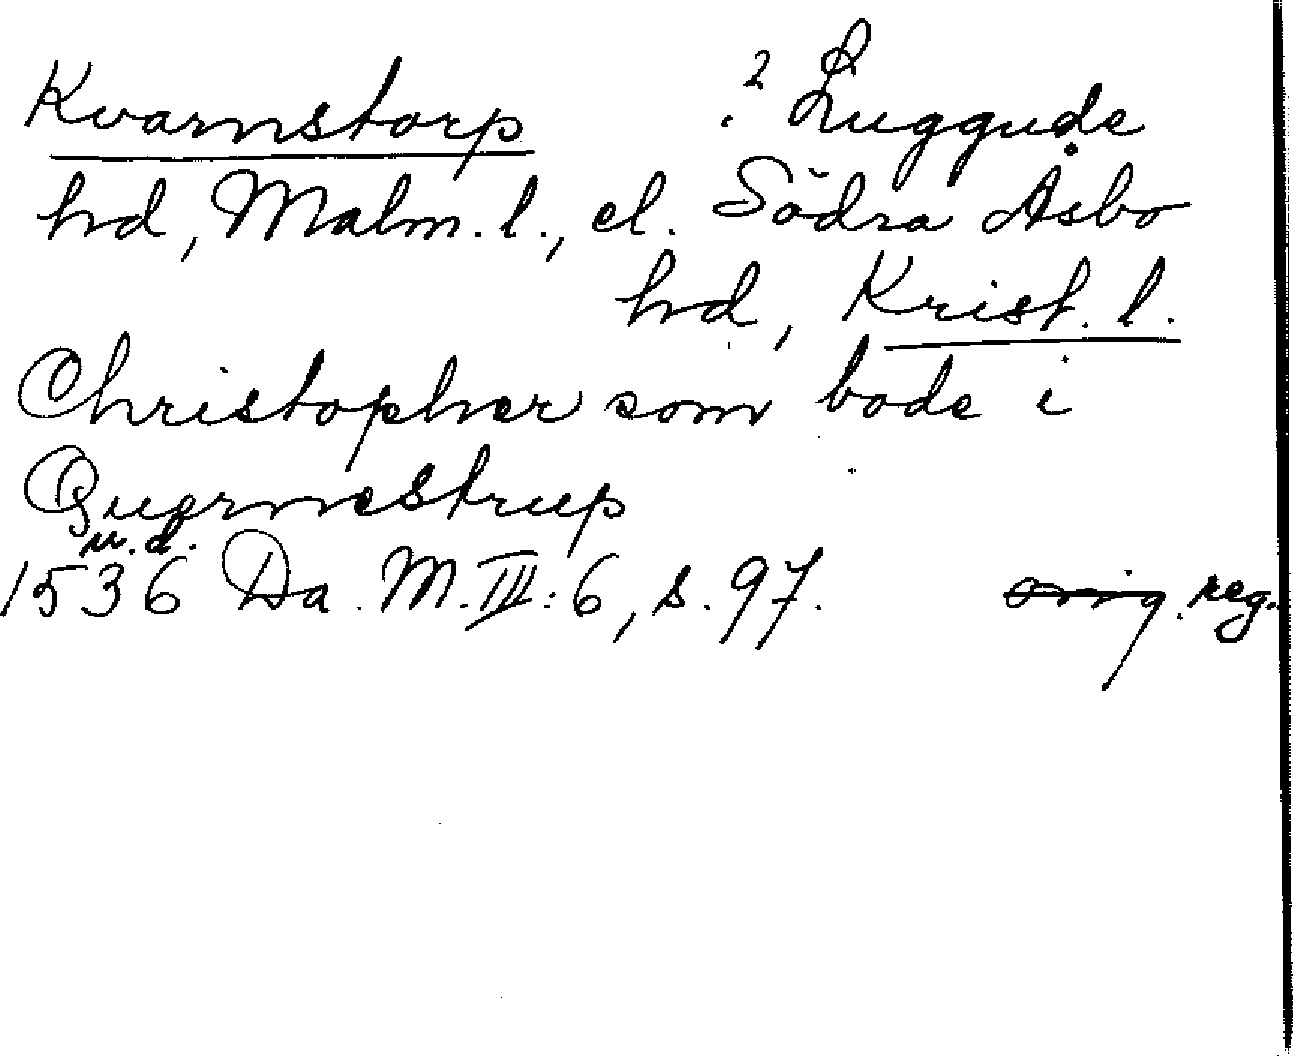 Kvarnstorp ? Luggude
hd, Malm. l., el. Södra Åsbo
hd, Krist. l.
Christopher som bode i
Quernestrup
u.d.
1536 Da. M. III: 6, s. 97. orig. reg.